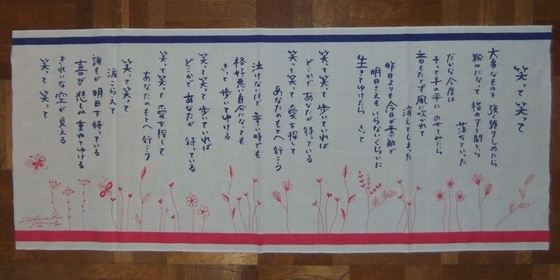 笑って笑って
大事なものを 強く握りしめたら
粉々になって 指のすき間から
落ちていった
だから今度は
そっと手の平に のせてみたら
音もたてず風に吹かれて
消えてしまった
昨日よりも今日が素敵で
明日さえも いらないくらいに
生きてゆけたら きっと
笑って笑って 歩いていれば
どこかであなたが 待っている
笑って笑って 愛を探して
あなたのもとへ 行こう
泣けないほど 辛い時でも
格好悪い自分になっても
きっと 歩いてゆける
笑って笑って 歩いていれば
どこかで あなたが 待っている
笑って笑って 愛を探して
あなたのもとへ 行こう
笑って笑って
涙こらえて
誰もが 明日を待っている
喜び 悲しみ 重ねてゆける
きれいな 空が 見える
笑って 笑って